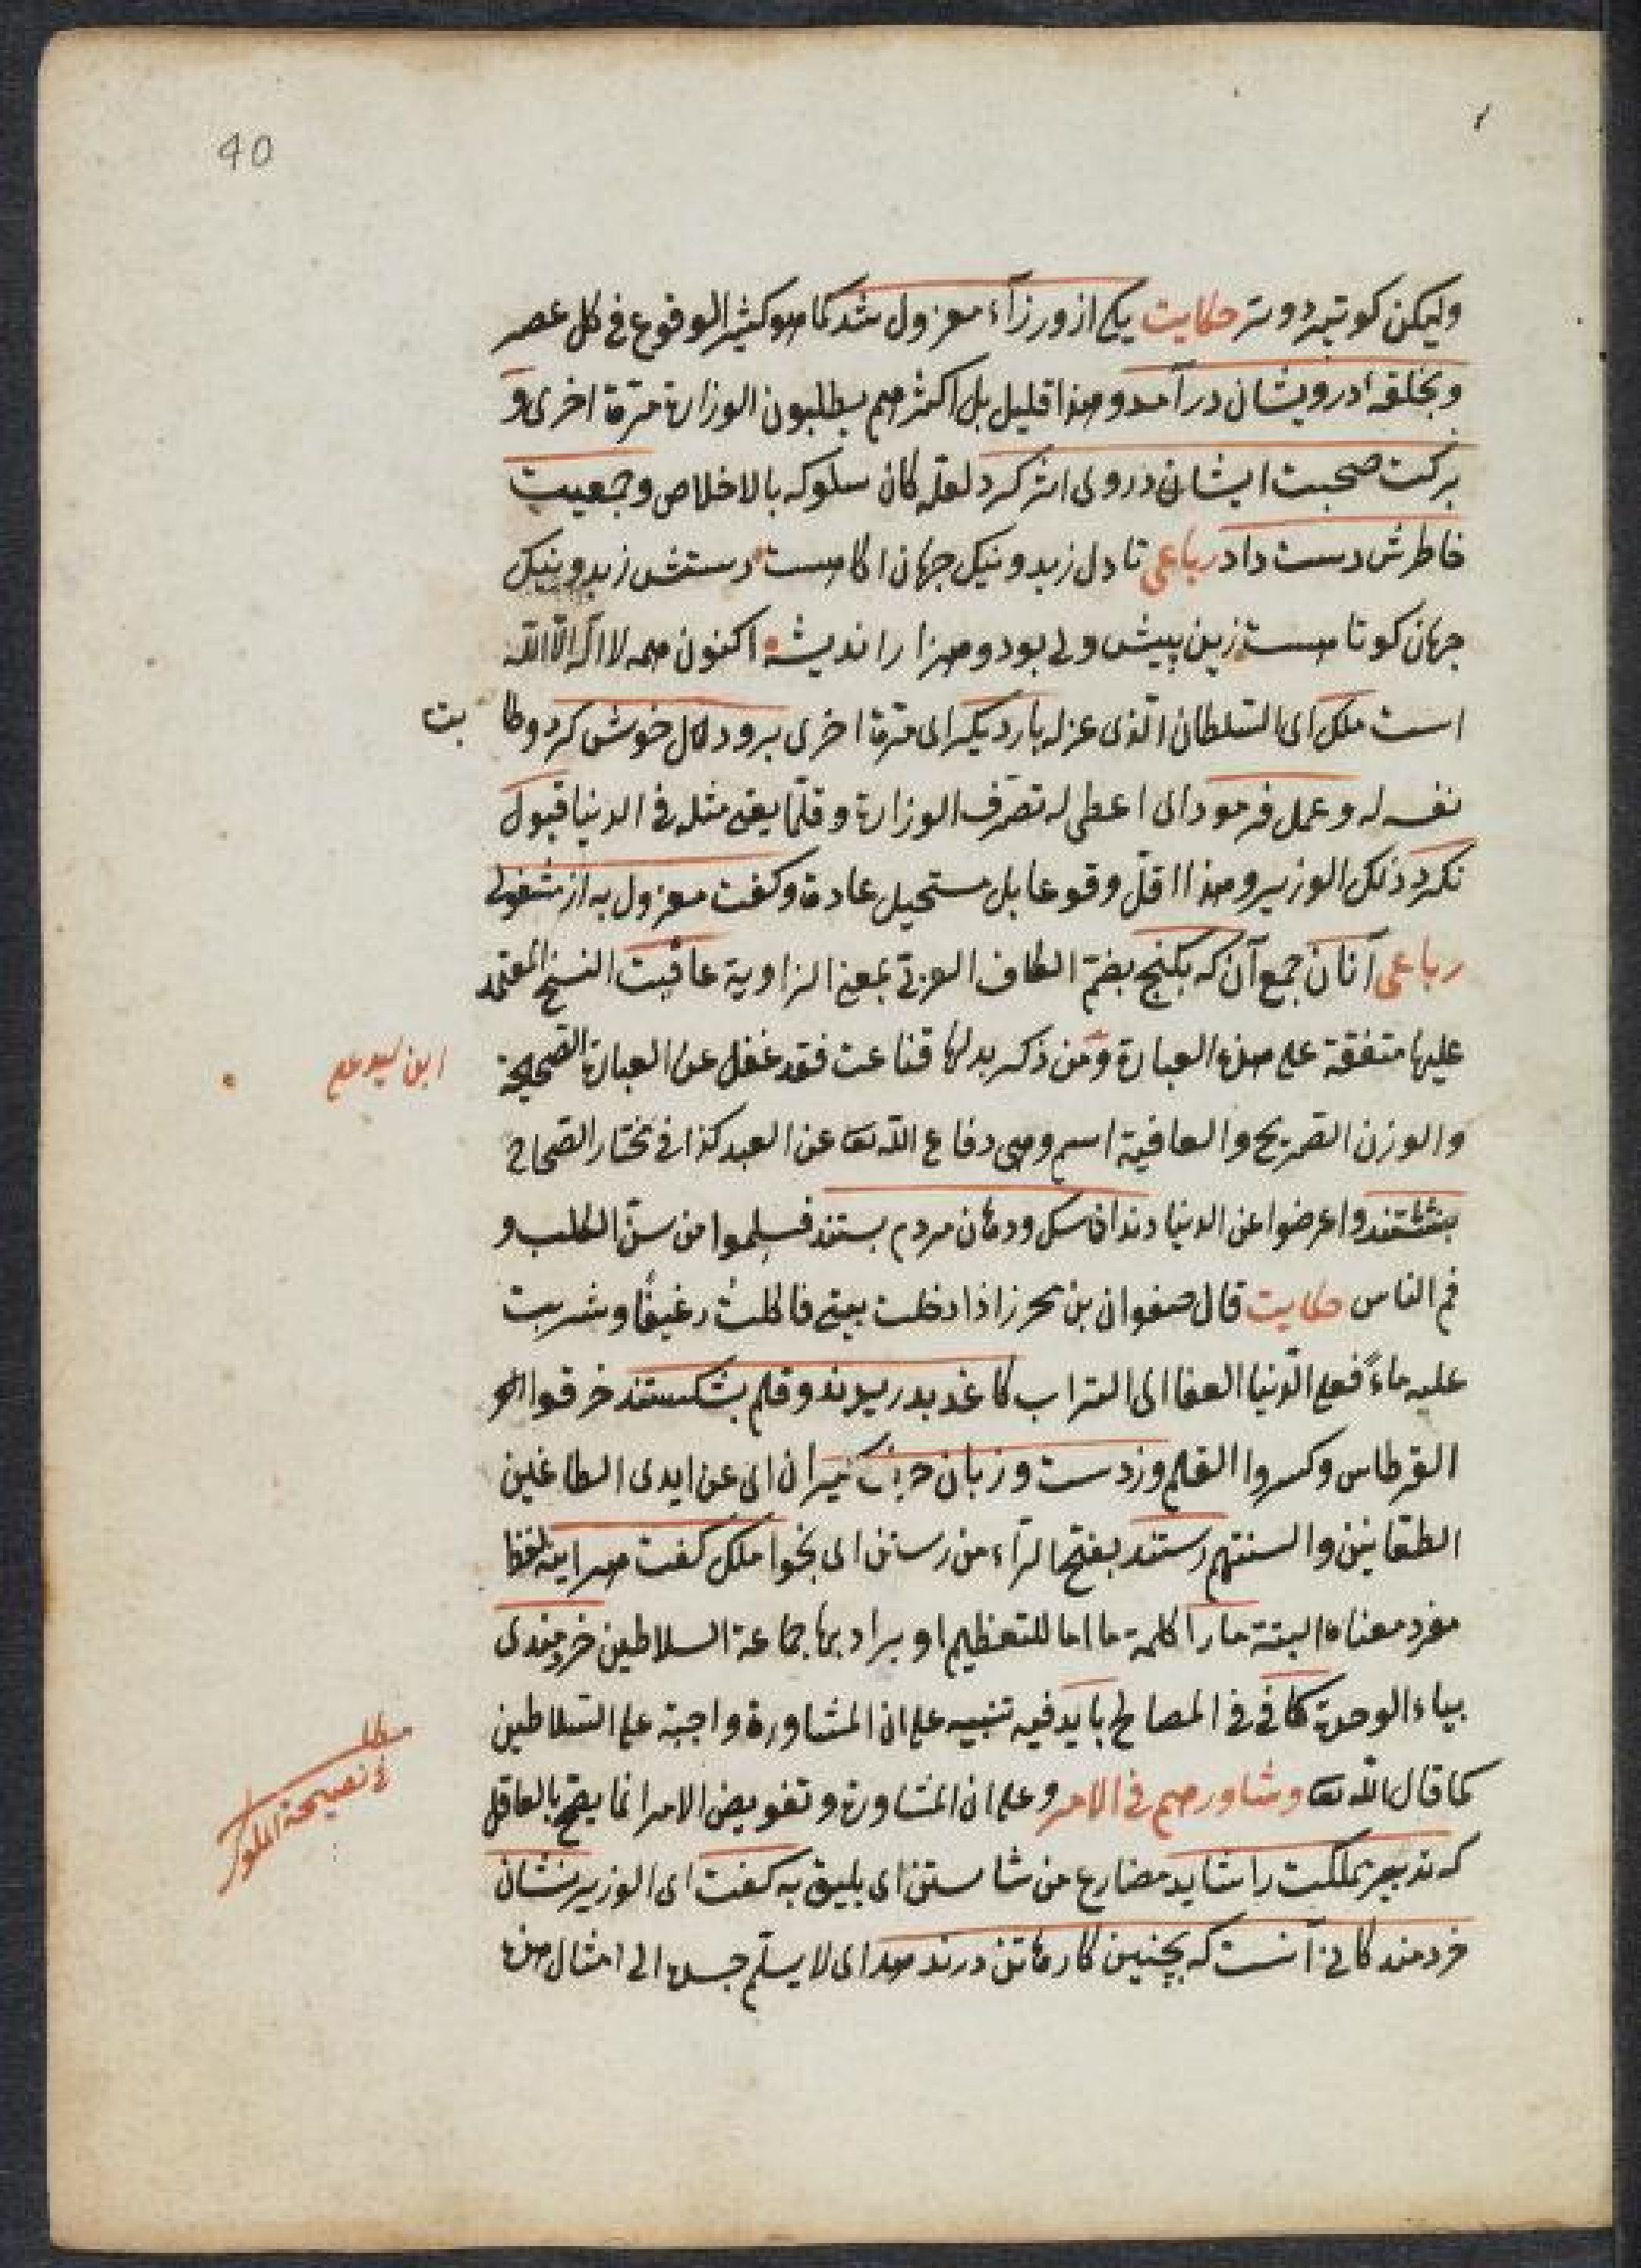 40
ولیکن کوتیه دوتر حکایت یکی از ورزآء معزول شد کما هو کثیر الوقوع فی کل عصر
وبحلقهٔ درویشان درآمد وهذا قلیل بل اکثرهم یطلبون الوزارة مرّة اخری و
برکت صحبت ایشان در وی اثر کرد لعله کان سلوکه بالاخلاص وجمعیت
خاطرش دست داد رباعی تا دل زبد ونیک جهان اکاهست دستش زبد ونیک
جهان کوتاهست زین پیش ولی بود وهزار اندیشه اکنون همه لا اله الا الله
است ملک ای السلطان الذی عزله بار دیکر ای مرّة اخری برو دل خوش کرد وطابت
نفسه له وعمل فرمود ای اعطی له تصرّف الوزارة وقلّما یقع مثله فی الدنیا قبول
نکرد ذلک الوزیر وهذا اقلّ وقوعا بل مستحیل عادة وکفت معزول به از مشغولی
رباعی آنان جمع آن که بکنج بضمّ الکاف العربی بمعنی الزاویة عافیت النسخ المعتمد
علیها متفقة علی هذه العبارة ومن ذکر بدلها قناعت فقد غفل عن العبارة الصحیحة
ابن سیدعلی
والوزن الصریح والعافیة اسم وهی دفاع الله تعا عن العبد کذا فی مختار الصحاح
بنشستند واعرضوا عن الدنیا دندان سک ودهان مردم بستند فسلموا من سنّ الکلب و
فم الناس حکایت قال صفوان بن محرز اذا دخلت بیتی فاکلت رغیفًا وشربت
علیه ماءً فعلی الدّنیا العفا ای التراب کاغد بدریدند وقلم بشکستند خرقوا
القرطاس وکسروا القلم وزدست وزبان حرف کیران ای عن ایدی الطاعنین
الطعّانین والسنتهم رستند بفتح الرّاء من رستن ای نجوا ملک کفت هراینه لفظا
مفرد معناه البتة مارا کلمة ما اما للتعظیم او یراد بها جماعة السلاطین خردمندی
بیاء الوحدة کافی فی المصالح باید فیه تنبیه علی ان المشاورة واجبة علی السّلاطین
کما قال الله تعا وشاورهم فی الامر وعلی ان المشاورة وتفویض الامر انما یصحّ بالعاقل
مطلب
فی نصیحة الملوک
که تدبیر مملکت را شاید مضارع من شایستن ای یلیق به کفت ای الوزیر نشان
خردمند کافی آنست که بچنین کارها تن درندهد ای لا یسلّم جسده الی امثال هذه